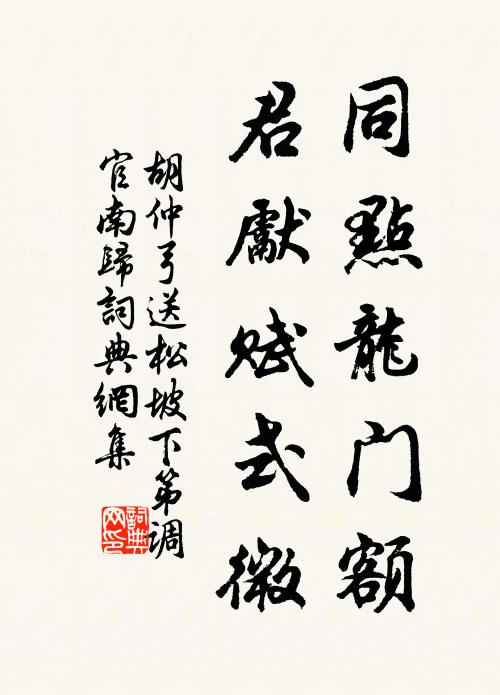 同點龍门額
君獻赋式微
胡仲弓送松坡下第調
官南歸詞典網集
詞典网印